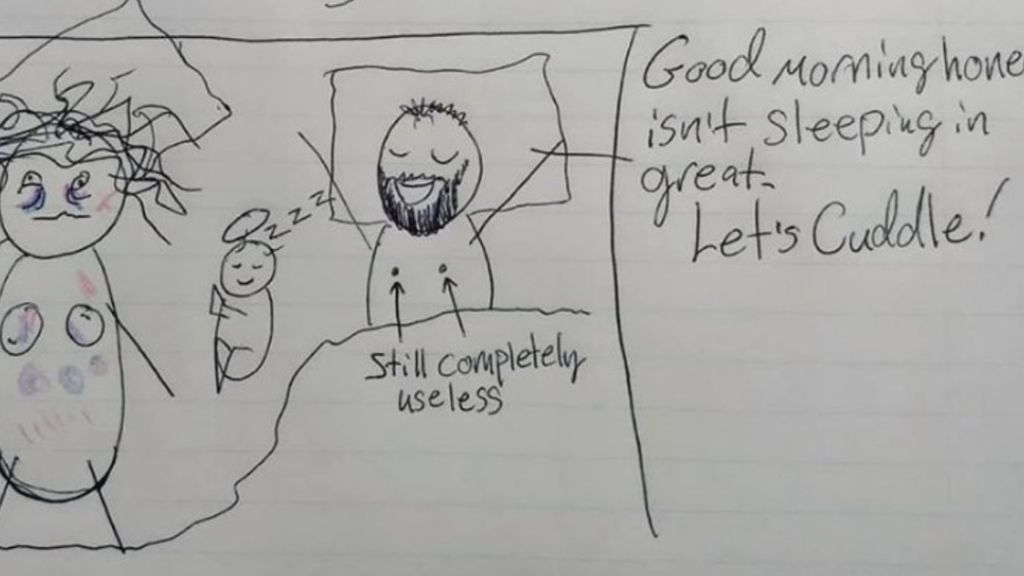 zzzz
Still completely
useless
Good morning hone
isn't sleeping in
great.
Let's Cuddle!